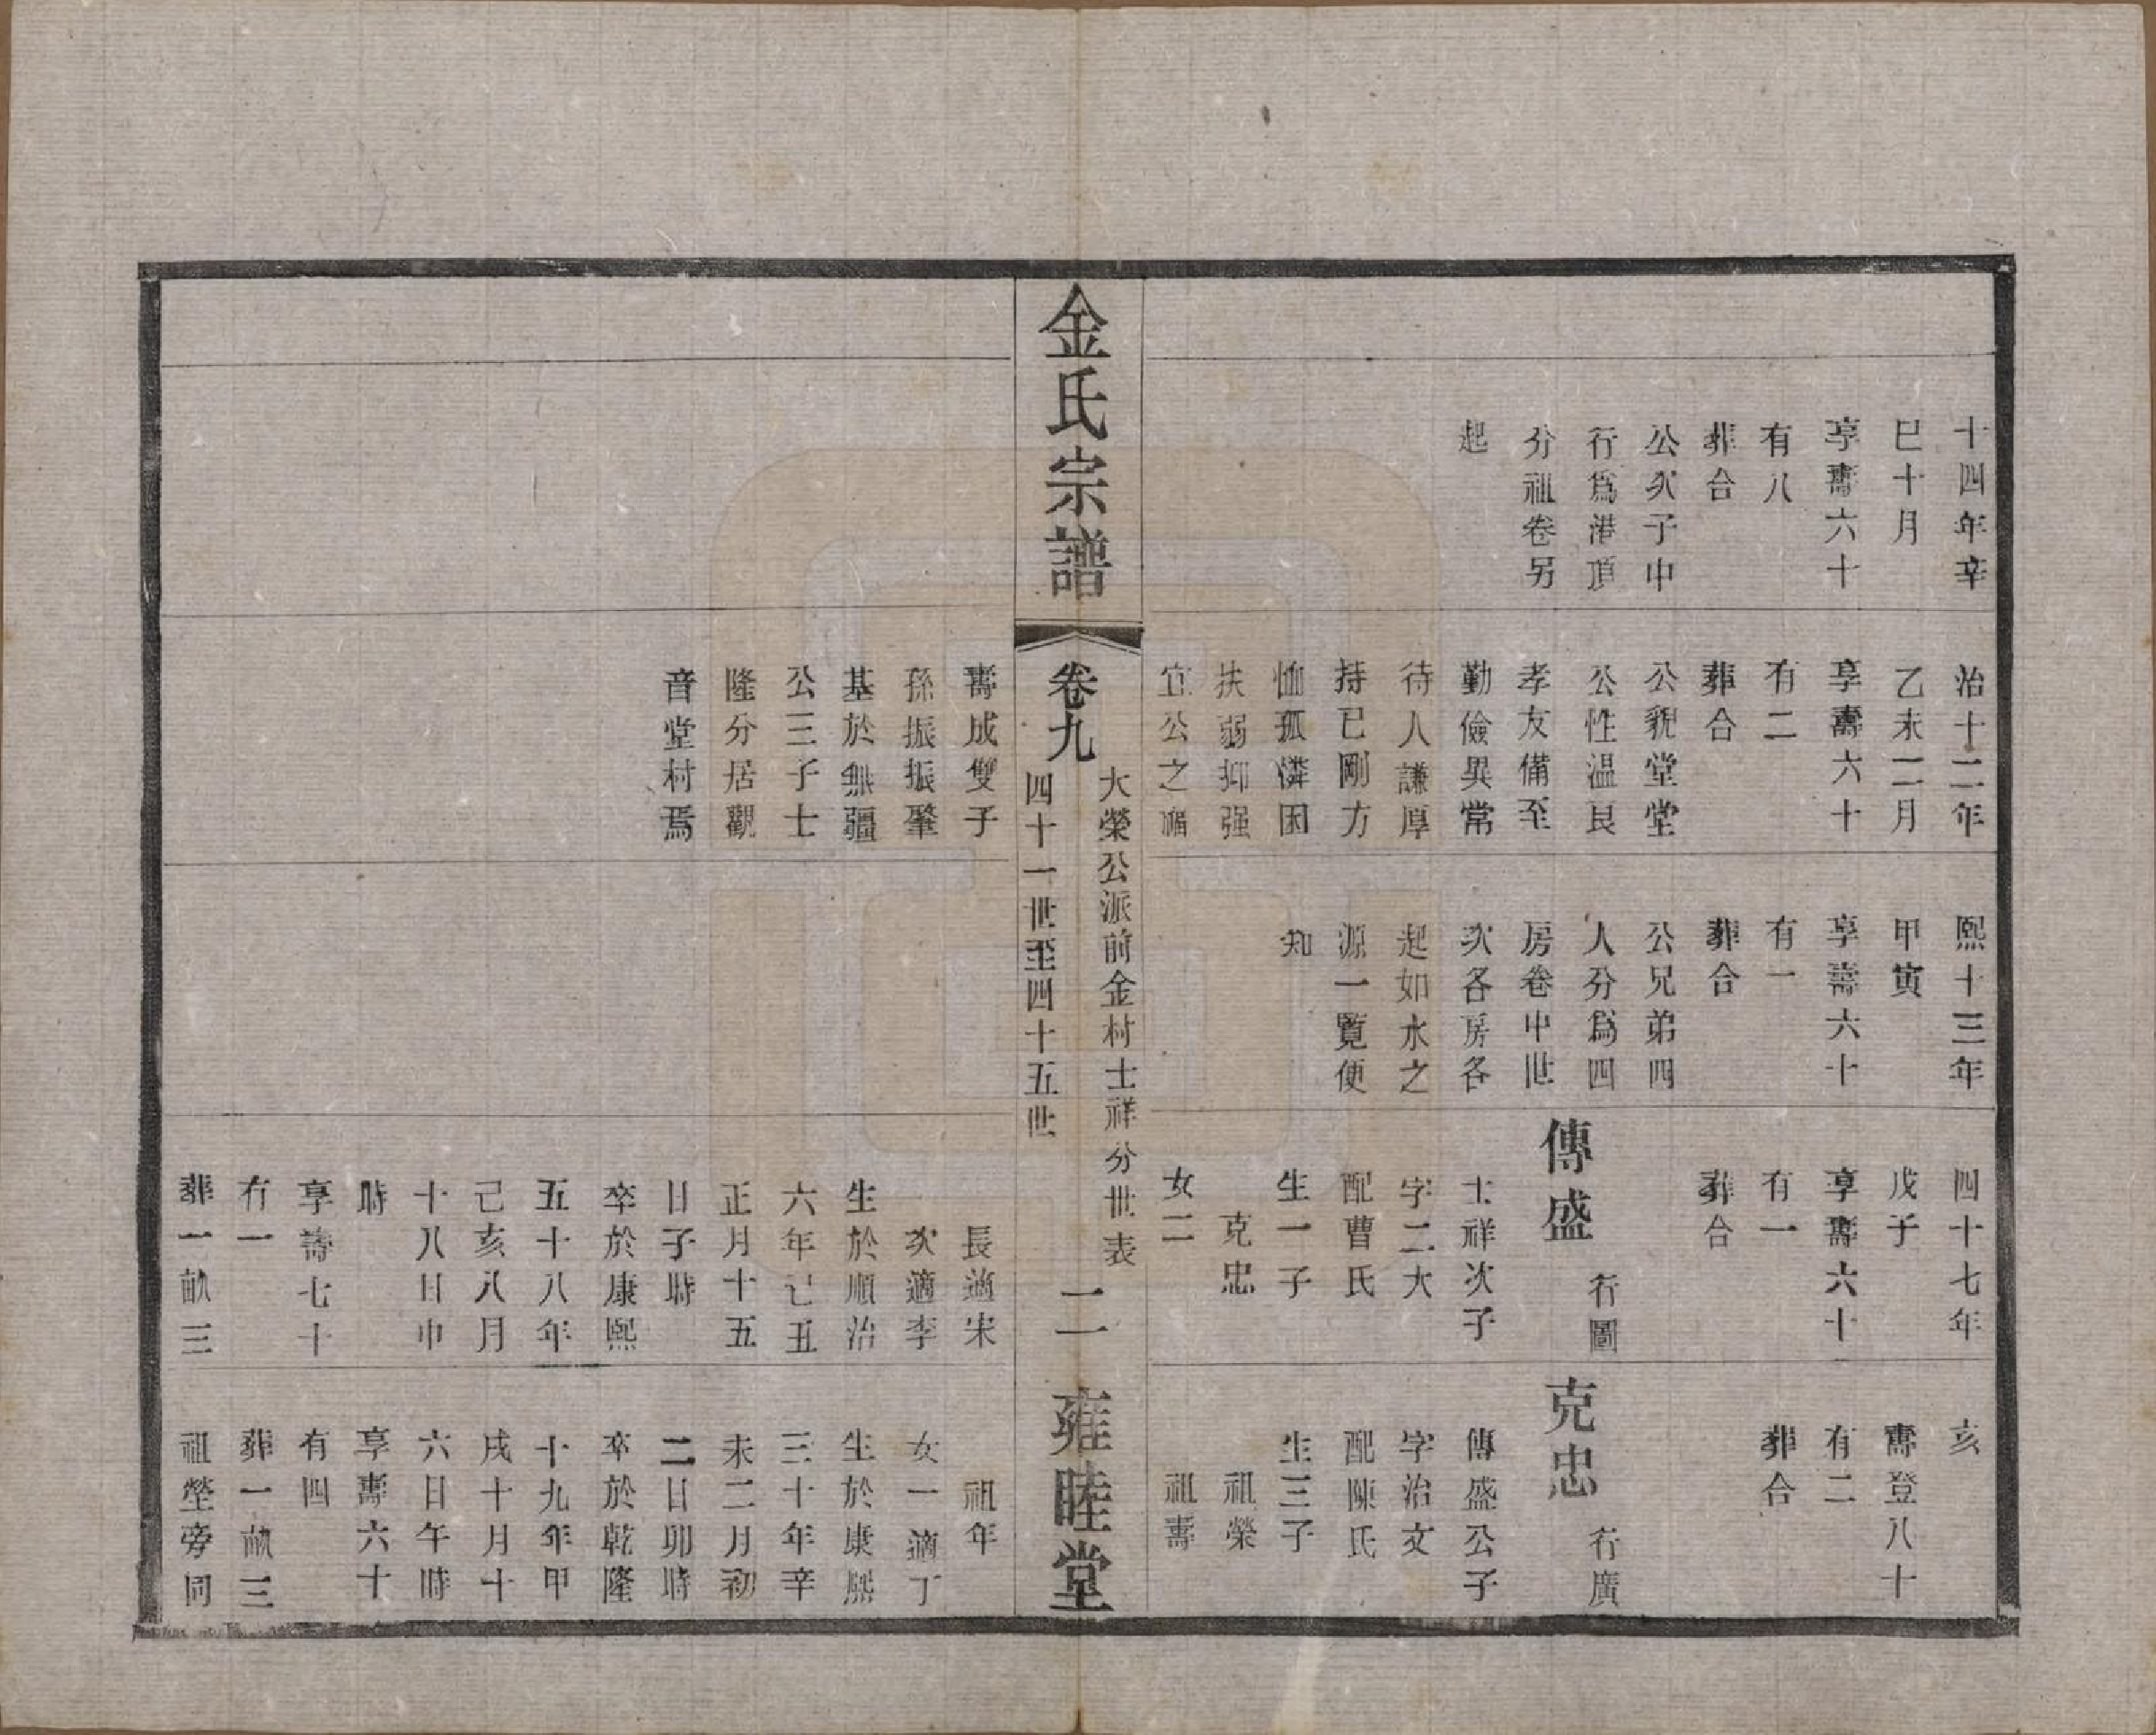 十四年辛
巳十月
享壽六十
有八
葬合
公次子中
行爲港頂
分祖卷另
起
治十二年
乙未二月
享壽六十
有二
葬合
公貌堂堂
公性温良
孝友備至
勤儉異常
待人謙厚
持已剛方
恤孤憐困
扶弱抑强
宜公之
熙十三年
甲寅
享壽六十
有一
葬合
公兄弟四
人分爲四
房卷中世
次各房各
起如水之
源一覽便
知
四十七年
戊子
享壽六十
有一
葬合
傳盛
行圖
士祥次子
字二大
配曹氏
生一子
克忠
女二
亥
壽登八十
有二
葬合
克忠
行廣
傳盛公子
字治文
配陳氏
生三子
祖榮
祖壽
金氏宗譜
卷九
大榮公派前金村士祥分世表
四十一世至四十五世
二一
雍睦堂
壽成雙子
孫振振肇
基於無疆
公三子士
隆分居觀
音堂村焉
長適宋
次適李
生於順治
六年己丑
正月十五
日子時
卒於康熙
五十八年
己亥八月
十八日申
時
享壽七十
有一
葬一畝三
祖年
女一適丁
生於康熙
三十年辛
未二月初
二日卯時
卒於乾隆
十九年甲
戌十月十
六日午時
享壽六十
有四
葬一畝三
祖塋旁同